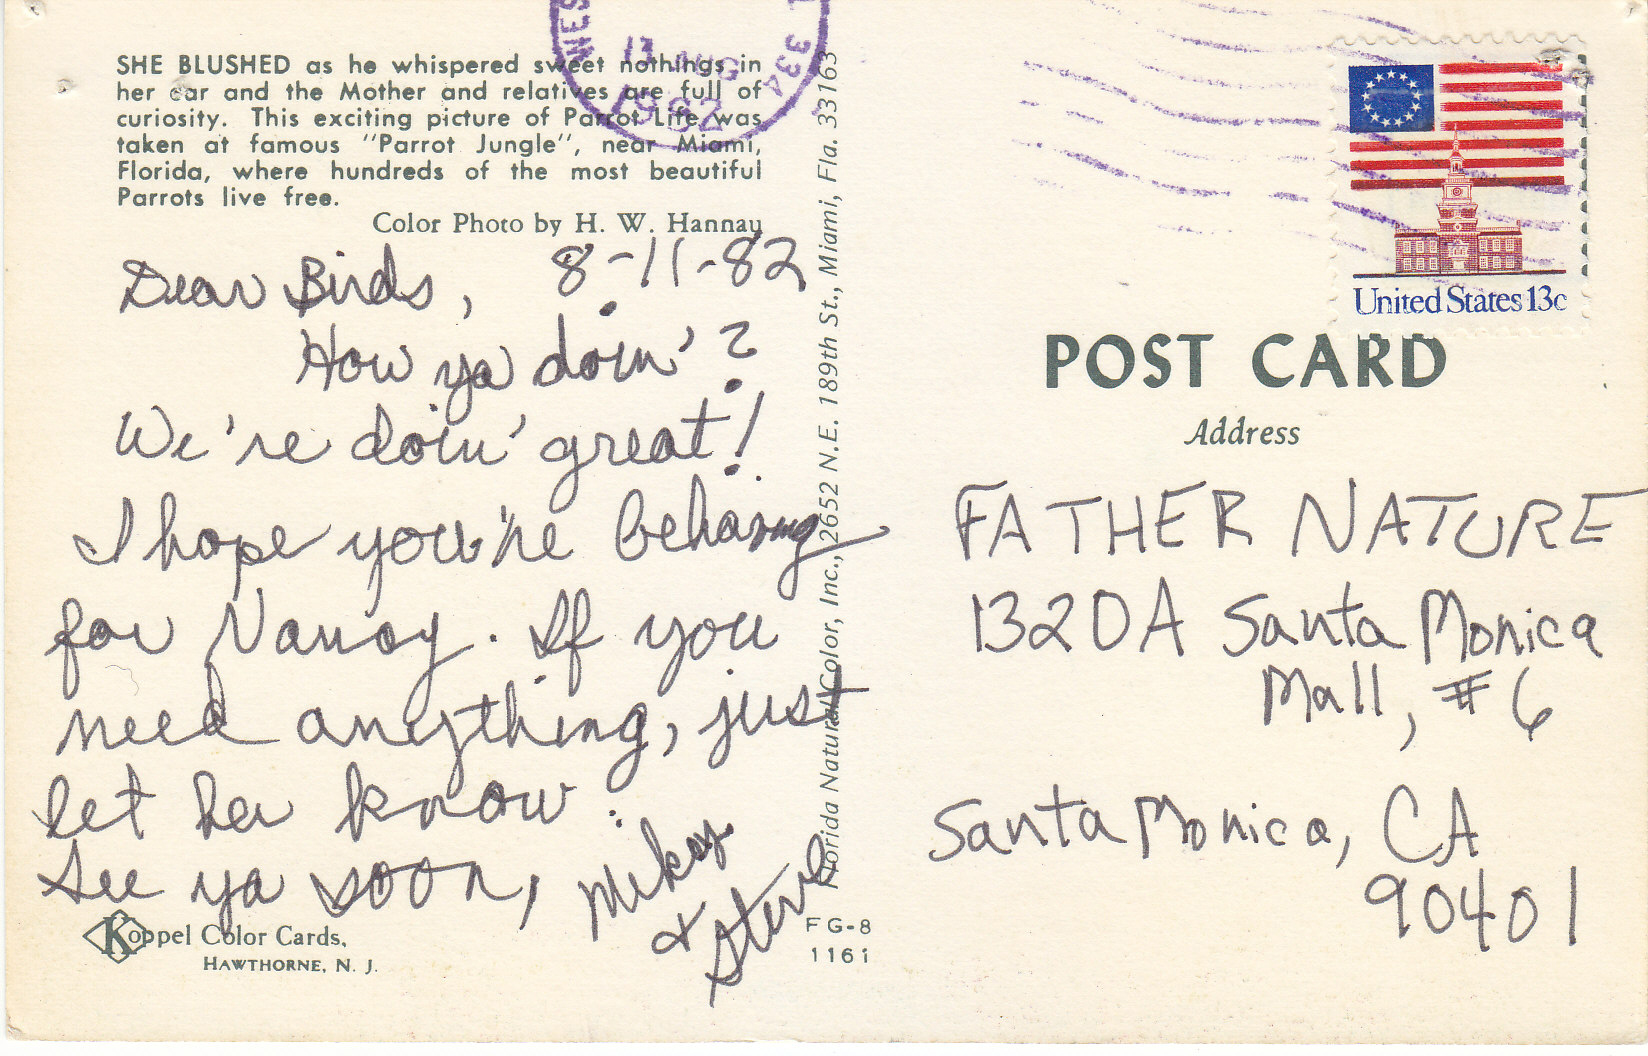 SHE BLUSHED as he whispered sweet nothings in
her ear and the Mother and relatives are full of
curiosity. This exciting picture of Parrot Life was
taken at famous "Parrot Jungle", near Miami,
Florida, where hundreds of the most beautiful
Parrots live free.
Color Photo by H. W. Hannau
8-11-82
Dear Birds,
How ya doin'?
We're doin' great!
I hope you're behaving
for Nancy. If you
need anything, just
let her know.
See ya soon,
Mikey
& Steve
Koppel Color Cards,
HAWTHORNE, N. J.
Florida Natural Color, Inc., 2652 N.E. 189th St., Miami, Fla. 33163
FG-8
1161
13 AUG
1982
334
United States 13c
POST CARD
Address
FATHER NATURE
1320A Santa Monica
Mall, #6
Santa Monica, CA
90401